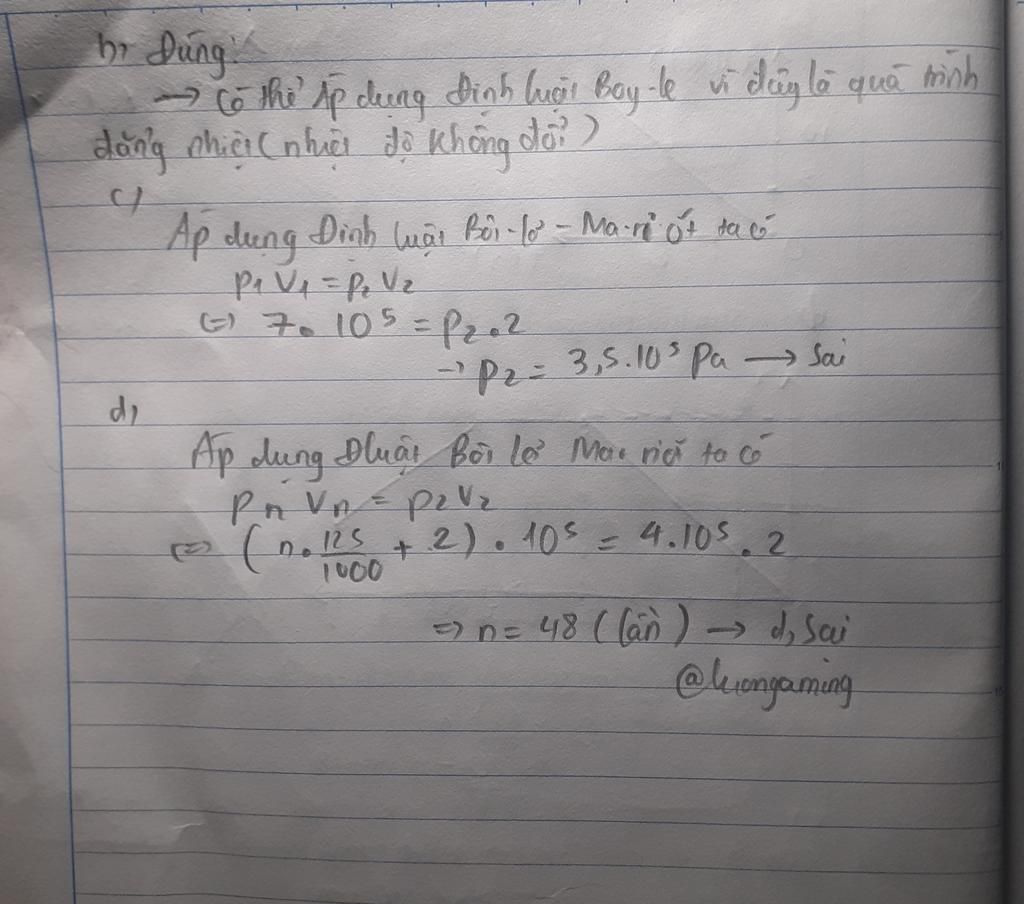 b, Đúng:
→ Có thể Áp dụng Định luật Boy-le vì đây là quá trình
đẳng nhiệt (nhiệt độ không đổi)
c)
Áp dụng Định luật Bôi-lơ - Ma-ri-ốt ta có
P₁ V₁ = P₂ V₂
(=) 7.10⁵ = P₂.2
→ P₂ = 3,5.10⁵ Pa → Sai
d,
Áp dụng Đluật Bôi lơ Ma ta có
Pₙ Vₙ = P₂V₂
(=) (n.125/1000 + 2).10⁵ = 4.10⁵.2
=> n = 48 (lần) → d, Sai